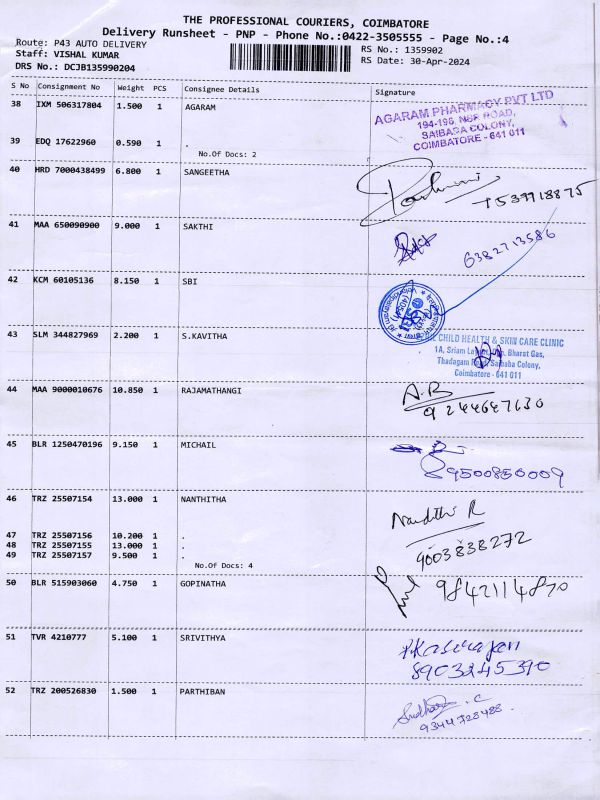 THE PROFESSIONAL COURIERS, COIMBATORE
Delivery Runsheet - PNP - Phone No.:0422-3505555 - Page No.:4
Route: P43 AUTO DELIVERY RS No.: 1359902
Staff: VISHAL KUMAR RS Date: 30-Apr-2024
DRS No.: DCJB135990204
S No Consignment No Weight PCS Consignee Details Signature
38 IXM 506317804 1.500 1 AGARAM
AGARAM PHARMACY PVT LTD
194-196, NSR ROAD,
SAIBABA COLONY,
COIMBATORE - 641 011
39 EDQ 17622960 0.590 1 .
No.Of Docs: 2
40 HRD 7000438499 6.800 1 SANGEETHA
7539718875
41 MAA 650090900 9.000 1 SAKTHI
6382713586
42 KCM 60105136 8.150 1 SBI
43 SLM 344827969 2.200 1 S.KAVITHA
CHILD HEALTH & SKIN CARE CLINIC
1A, Sriam Bharat Gas,
Thadagam Road, Saibaba Colony,
Coimbatore - 641 011
44 MAA 9000010676 10.850 1 RAJAMATHANGI
A.B
9244647630
45 BLR 1250470196 9.150 1 MICHAIL
9500850009
46 TRZ 25507154 13.000 1 NANTHITHA
Nandithi R
47 TRZ 25507156 10.200 1 .
48 TRZ 25507155 13.000 1 .
49 TRZ 25507157 9.500 1 .
No.Of Docs: 4
9003838272
50 BLR 515903060 4.750 1 GOPINATHA
9842114870
51 TVR 4210777 5.100 1 SRIVITHYA
8903245390
52 TRZ 200526830 1.500 1 PARTHIBAN
9344728488